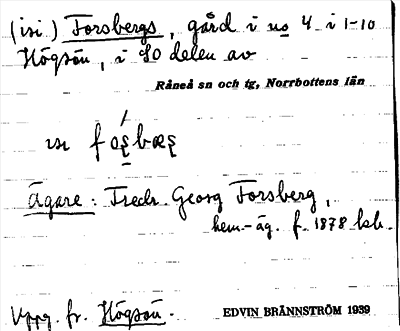 (isi) Forsbergs, gård i no 4 i 1-10
Högsön, i SO delen av
Råneå sn och tg, Norrbottens län
ısı
Ägare: Fredr. Georg Forsberg,
hem.-äg. f. 1878 bsb.
Uppg. fr. Högsön.
EDVIN BRÄNNSTRÖM 1939